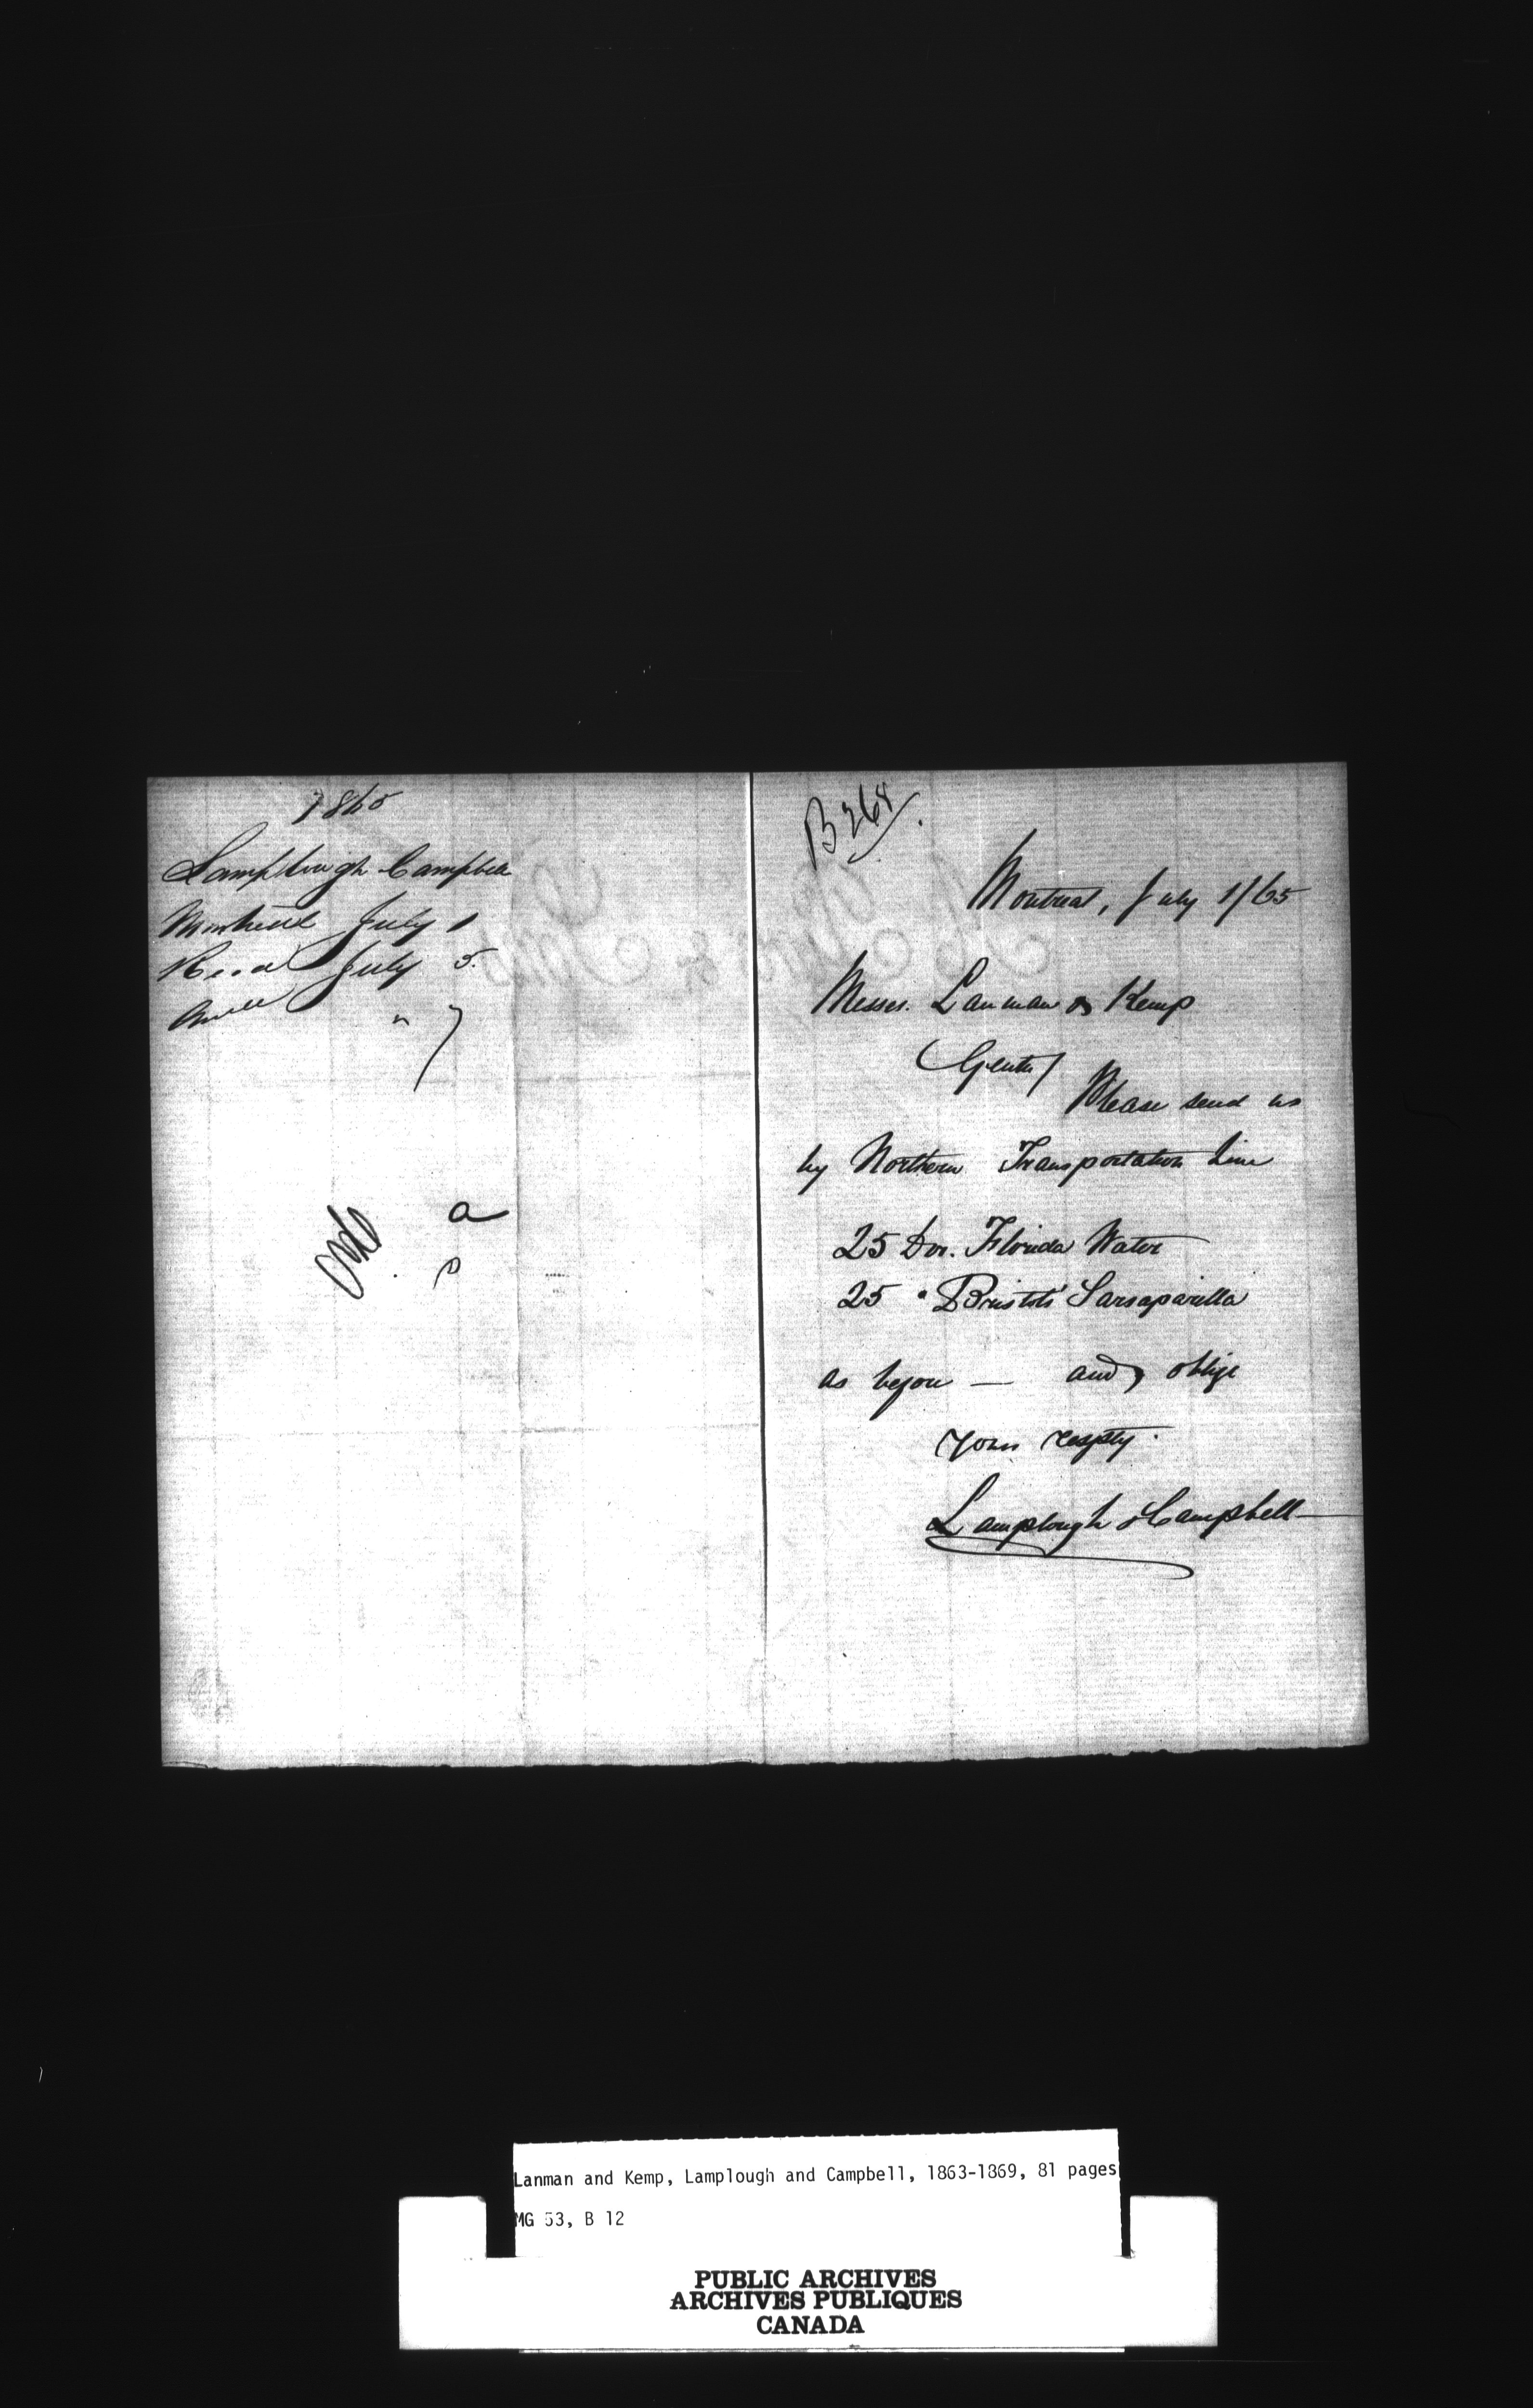 1865
Lamplough Campbell
Montreal July 1
Recd July 5.
" 7
B 268.
Montreal, July 1/65
Messrs. Lanman & Kemp
Gents/
Please send us
by Northern Transportation Line
25 Doz. Florida Water
25 " Bristols Sarsaparilla
as before — and oblige
Yours respty.
Lamplough & Campbell
Lanman and Kemp, Lamplough and Campbell, 1863-1869, 81 pages
MG 53, B 12
PUBLIC ARCHIVES
ARCHIVES PUBLIQUES
CANADA